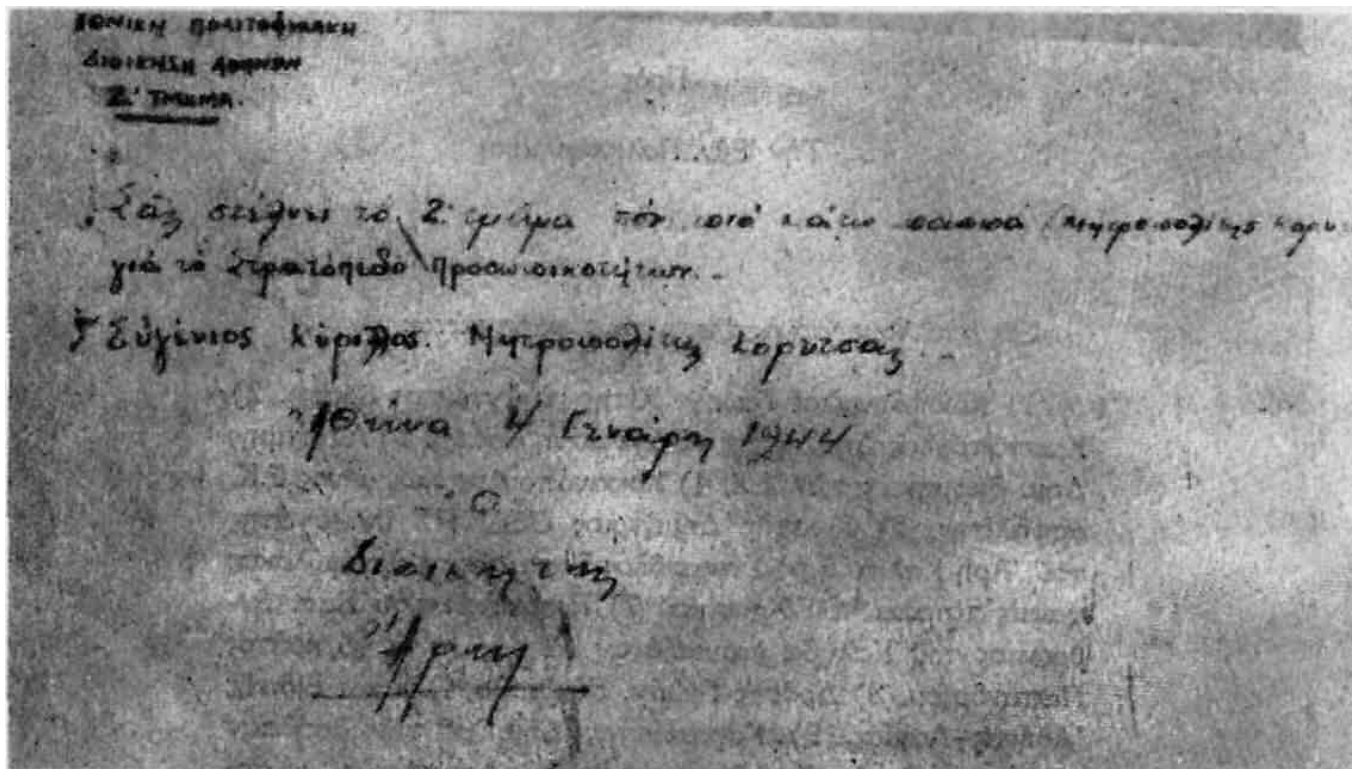 ΕΘΝΙΚΗ ΠΟΛΙΤΟΦΥΛΑΚΗ
ΔΙΟΙΚΗΣΗ ΑΘΗΝΩΝ
Ζ' ΤΜΗΜΑ.
Σᾶς στέλνει τό Ζ' τμῆμα τόν πιό κάτω παππά (Μητροπολίτης Κορυτ
γιά τό Στρατόπεδο Προσωπικοτήτων.
Εὐγένιος Κύριλλος. Μητροπολίτης Κορυτσᾶς
Ἀθήνα 4 Γενάρη 1944
Ὁ
Διοικητής
Ἄρης